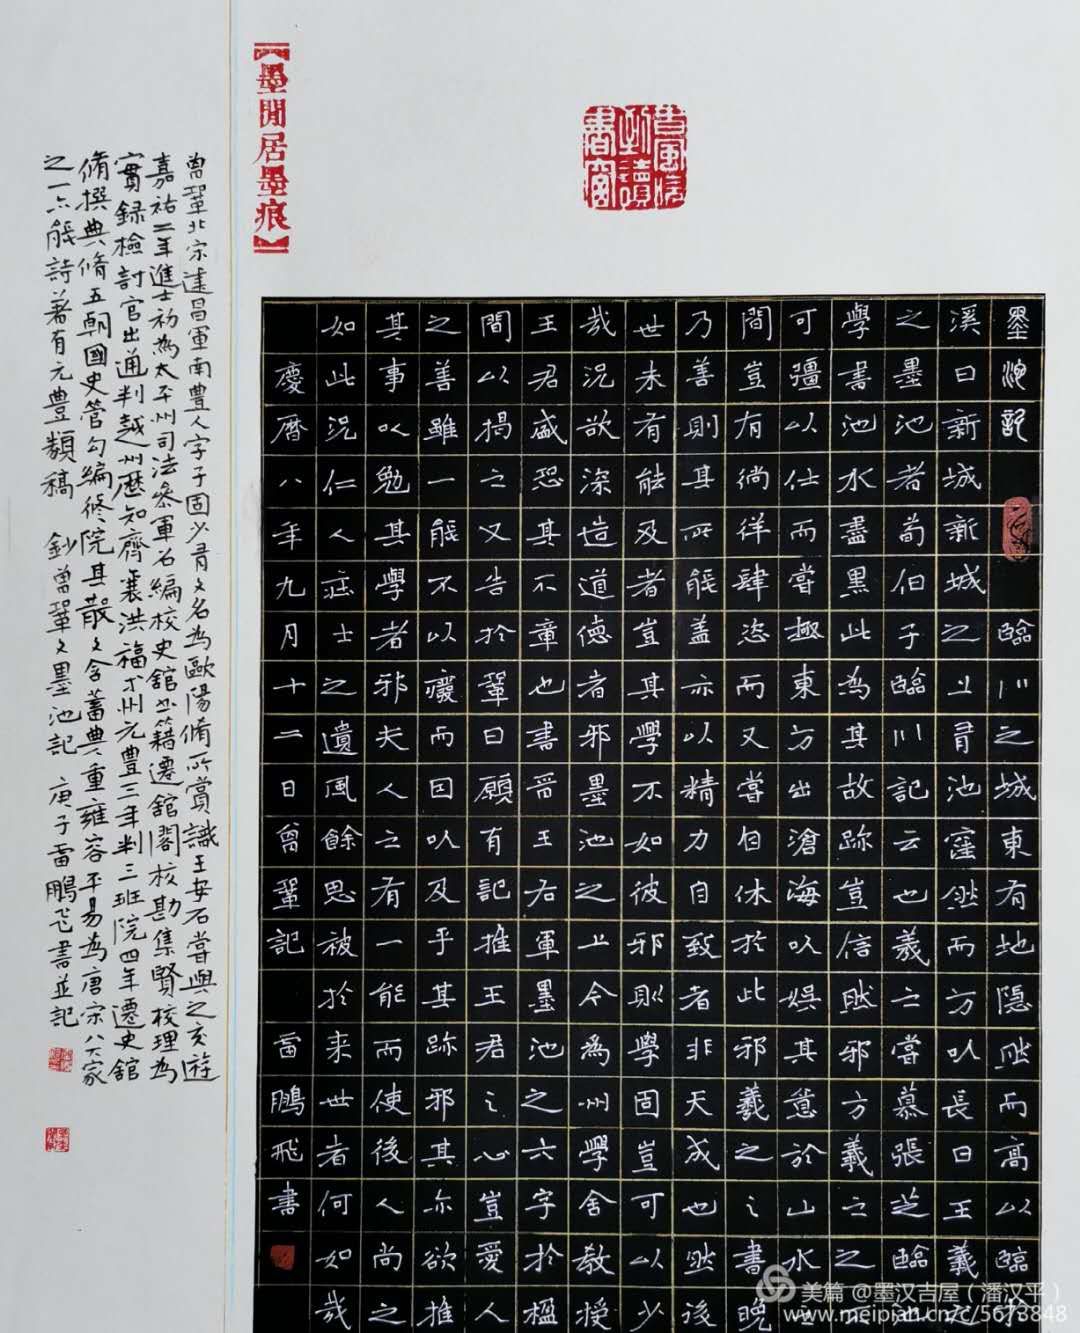 墨閒居墨痕
墨池記 臨川之城東有地隱然而高以臨於
溪曰新城新城之上有池窪然而方以長曰王羲
之墨池者荀伯子臨川記云也羲之嘗慕張芝臨池
學書池水盡黑此為其故跡豈信然邪方羲之之不
可彊以仕而嘗極東方出滄海以娛其意於山水之
間豈有徜徉肆恣而又嘗自休於此邪羲之之書晚
乃善則其所能蓋亦以精力自致者非天成也然後
世未有能及者豈其學不如彼邪則學固豈可以少
哉況欲深造道德者邪墨池之上今為州學舍教授
王君盛恐其不章也書晉王右軍墨池之六字於楹
間以揭之又告於鞏曰願有記推王君之心豈愛人
之善雖一能不以廢而因以及乎其跡邪其亦欲推
其事以勉其學者邪夫人之有一能而使後人尚之
如此況仁人莊士之遺風餘思被於来世者何如哉
慶曆八年九月十二日曾鞏記 雷鵬飛書
曾鞏北宋建昌軍南豊人字子固少有文名為歐陽脩所賞識王安石嘗與之交遊
嘉祐二年進士初為太平州司法參軍召編校史館书籍遷館閣校勘集賢校理為
實録檢討官出通判越州歷知齊襄洪福才州元豊三年判三班院四年遷史館
脩撰典脩五朝國史管勾編修院其散文含蓄典重雍容平易為唐宋八大家
之一亦能詩著有元豊類稿 鈔曾鞏文墨池記 庚子雷鵬飞書並記
美篇 @墨汉吉屋（潘汉平）
www.meipian.cn/c/5673848